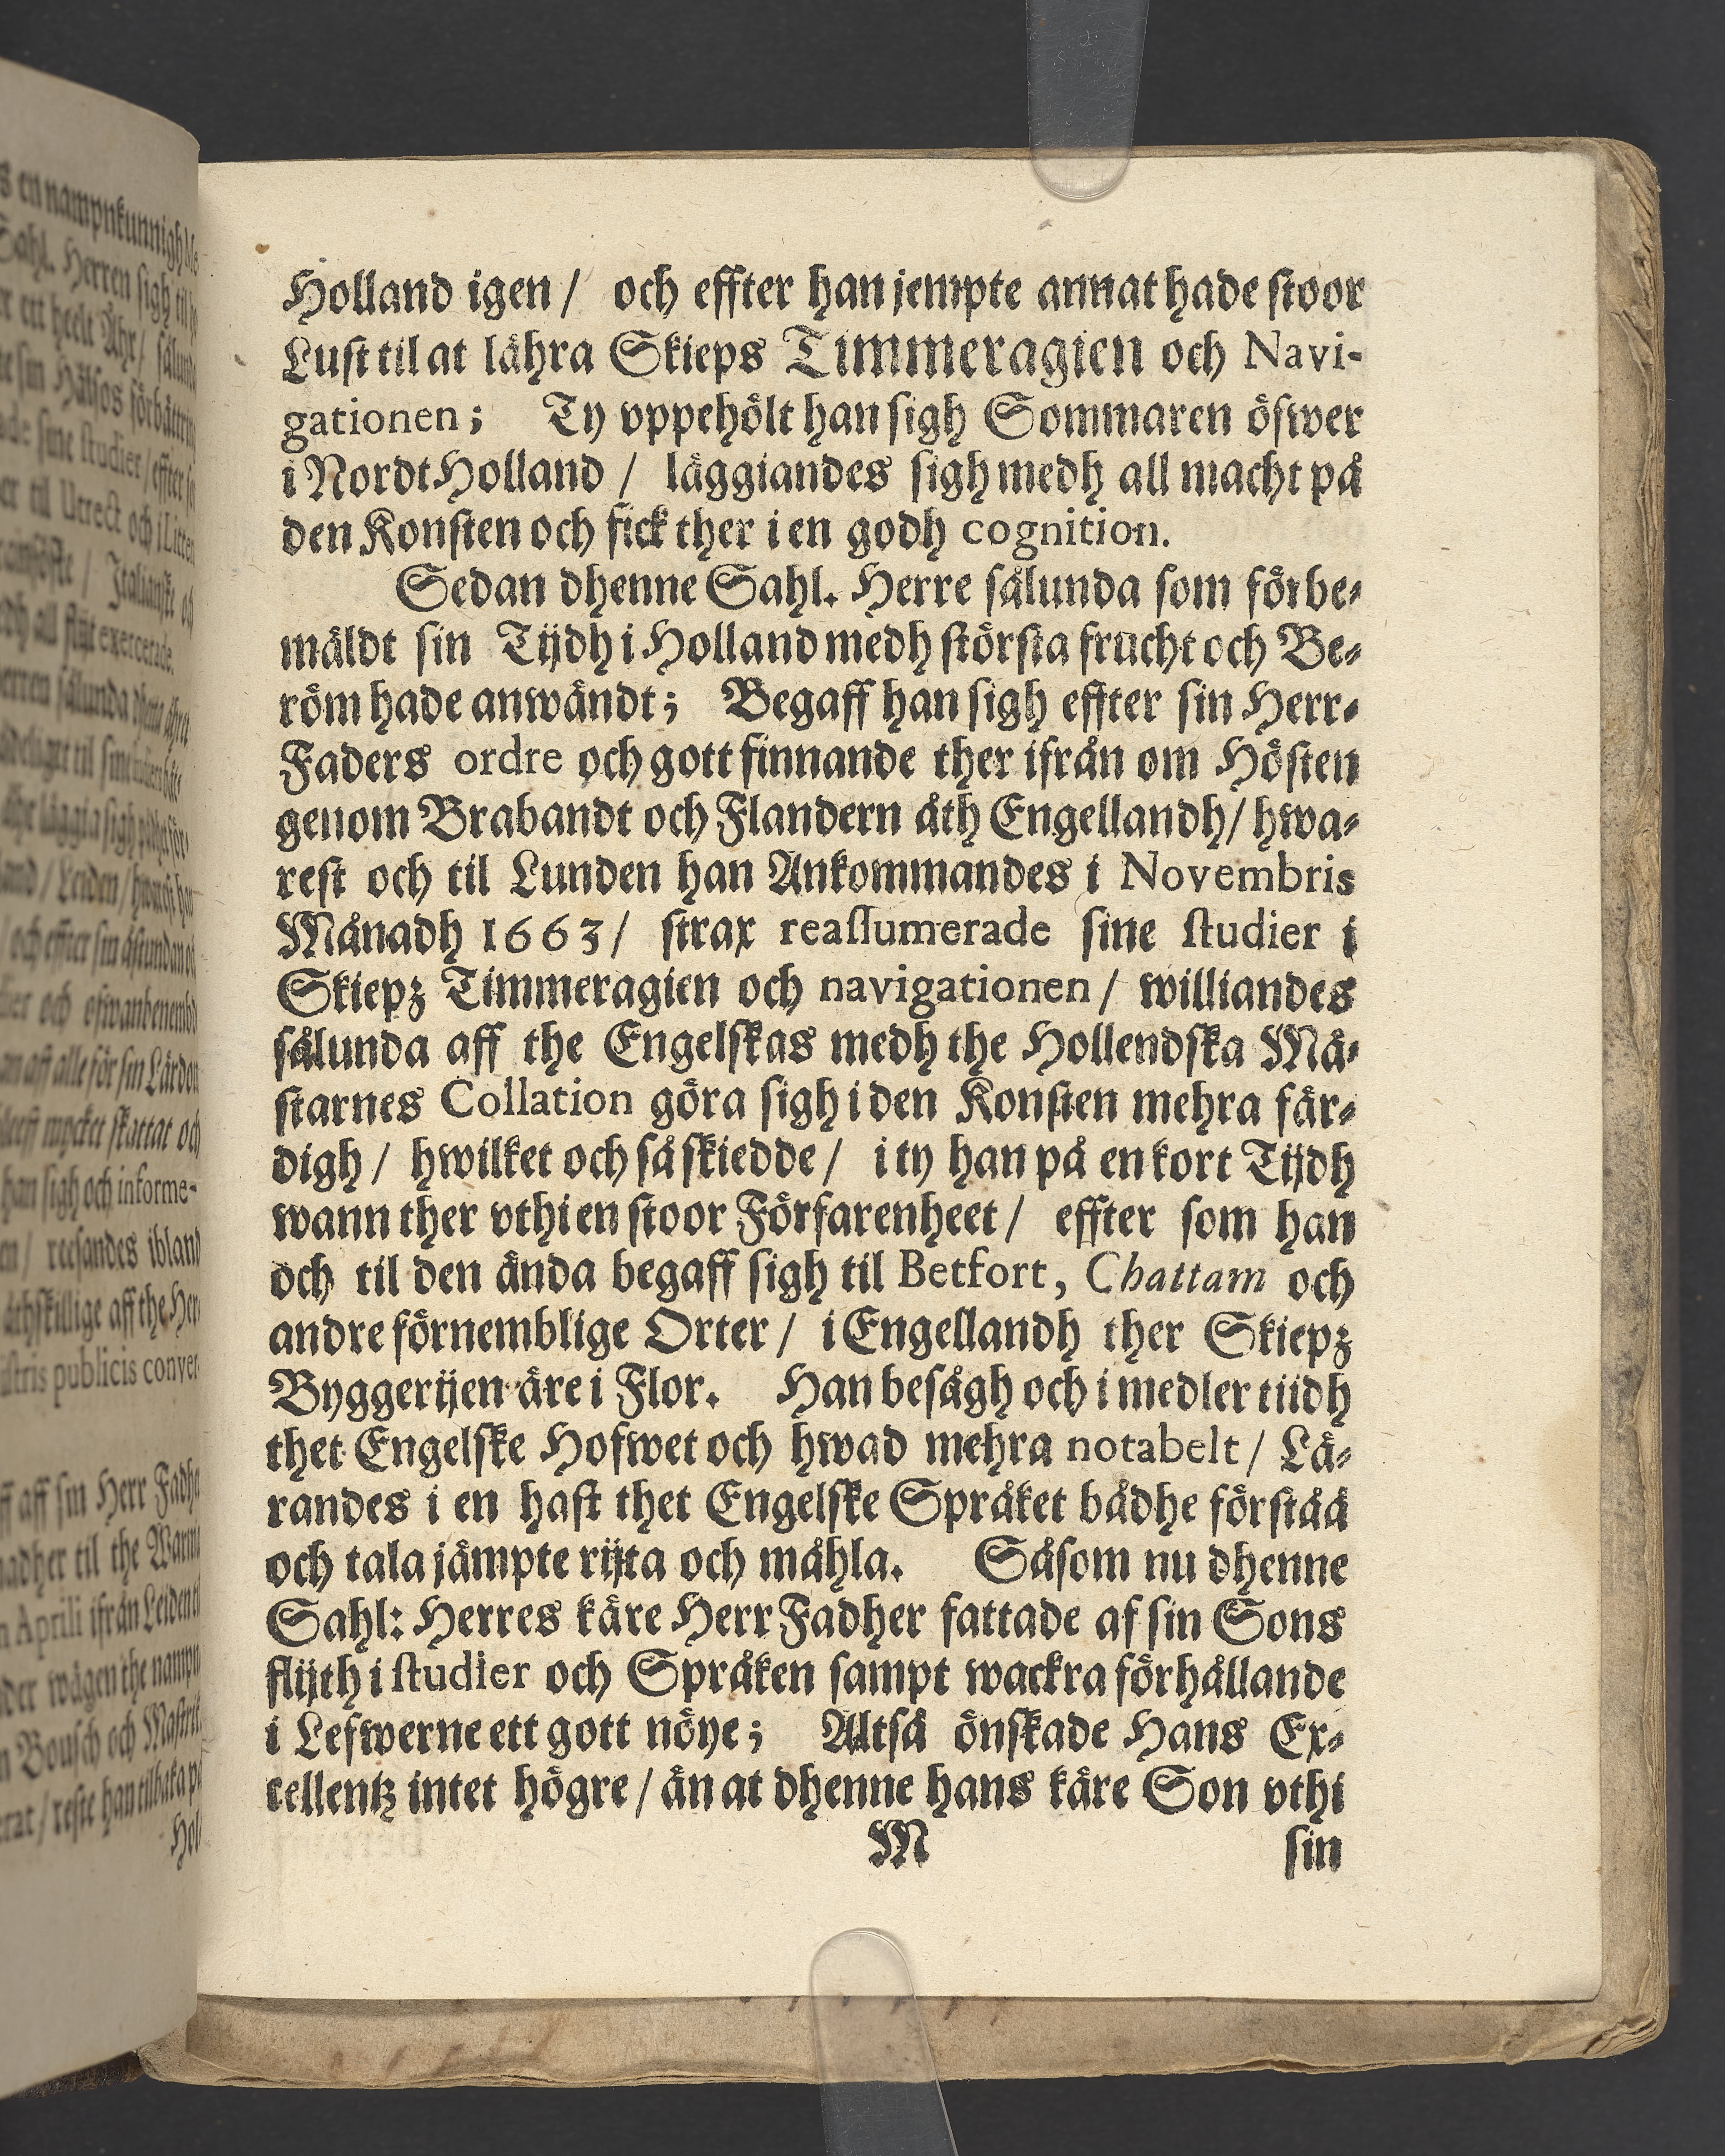 Holland igen / och effter han jempte annat hade stoor
Lust til at lähra Skieps Timmeragien och Navi-
gationen; Ty vppehölt han sigh Sommaren öfwer
i Nordt Holland / läggiandes sigh medh all macht på
den Konsten och fick ther i en godh cognition.
Sedan dhenne Sahl. Herre sålunda som förbe-
mäldt sin Tijdh i Holland medh största frucht och Be-
röm hade anwändt; Begaff han sigh effter sin Herr-
Faders ordre och gott finnande ther ifrån om Hösten
genom Brabandt och Flandern åth Engellandh / hwa-
rest och til Lunden han Ankommandes i Novembris
Månadh 1663 / strax reassumerade sine studier i
Skiepz Timmeragien och navigationen / williandes
sålunda aff the Engelskas medh the Hollendska Mä-
starnes Collation göra sigh i den Konsten mehra fär-
digh / hwilket och så skiedde / i ty han på en kort Tijdh
wann ther vthi en stoor Förfarenheet / effter som han
och til den ända begaff sigh til Betfort, Chattam och
andre förnemblige Orter / i Engellandh ther Skiepz
Byggerijen äre i Flor. Han besågh och i medler tiidh
thet Engelske Hofwet och hwad mehra notabelt / Lä-
randes i en hast thet Engelske Språket bådhe förståå
och tala jämpte rijta och måhla. Såsom nu dhenne
Sahl: Herres käre Herr Fadher fattade af sin Sons
flijth i studier och Språken sampt wackra förhållande
i Lefwerne ett gott nöye; Altså önskade Hans Ex-
cellentz intet högre / än at dhenne hans käre Son vthi
M sin